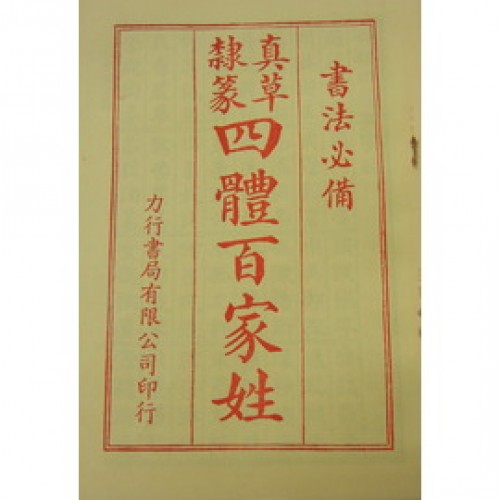 書法必備
真草
隸篆
四體百家姓
力行書局有限公司印行